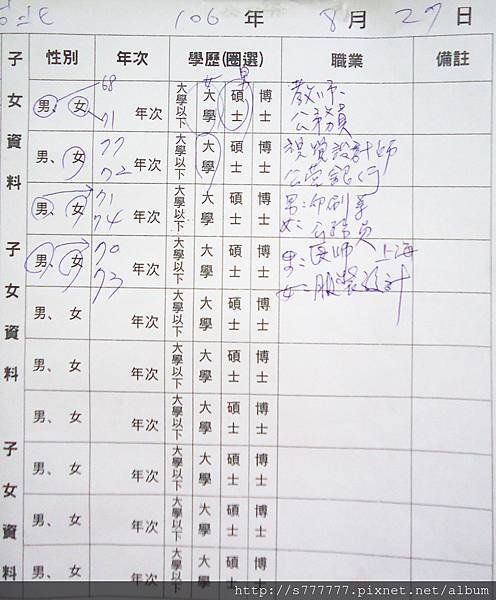 台北 106 年 8 月 27 日
子女資料 性別 年次 學歷(圈選) 職業 備註
女 男
男、女 68 71 年次 大學以下 大學 碩士 博士 教師、公務員
男、女 77 72 年次 大學以下 大學 碩士 博士 視覺設計師 公營銀行
男、女 71 74 年次 大學以下 大學 碩士 博士 男:印刷業 女:公務員
子女資料
男、女 70 73 年次 大學以下 大學 碩士 博士 男:醫師 上海 女:服裝設計
男、女 年次 大學以下 大學 碩士 博士
男、女 年次 大學以下 大學 碩士 博士
男、女 年次 大學以下 大學 碩士 博士
子女資料
男、女 年次 大學以下 大學 碩士 博士
男、女 年次 大學以下 大學 碩士 博士
男、女 年次 大學以下 大學 碩士 博士
http://s777777.pixnet.net/album